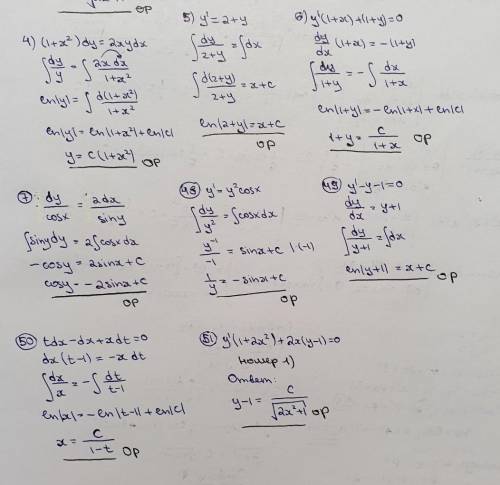 4) (1+x²)dy=2xydx
∫dy/y = ∫2xdx/1+x²
ln|y|=∫d(1+x²)/1+x²
ln|y|=ln|1+x²|+ln|C|
y=C(1+x²) ОР
5) y'=2+y
∫dy/2+y=∫dx
∫d(2+y)/2+y=x+C
ln|2+y|=x+C
ОР
6) y'(1+x)+(1+y)=0
dy/dx(1+x)=-(1+y)
∫dy/1+y=-∫dx/1+x
ln|1+y|=-ln|1+x|+ln|C|
1+y=C/1+x ОР
7) dy/cosx=2dx/siny
∫sinydy=2∫cosxdx
-cosy=2sinx+C
cosy=-2sinx+C
ОР
48 y'=y²cosx
∫dy/y²=∫cosxdx
y⁻¹/-1=sinx+C |·(-1)
1/y=-sinx+C
ОР
49 y'-y-1=0
dy/dx=y+1
∫dy/y+1=∫dx
ln|y+1|=x+C
ОР
50 tdx-dx+xdt=0
dx(t-1)=-xdt
∫dx/x=-∫dt/t-1
ln|x|=-ln|t-1|+ln|C|
x=C/1-t ОР
51 y'(1+2x²)+2x(y-1)=0
номер 1)
Ответ:
y-1=C/√|2x²+1| ОР